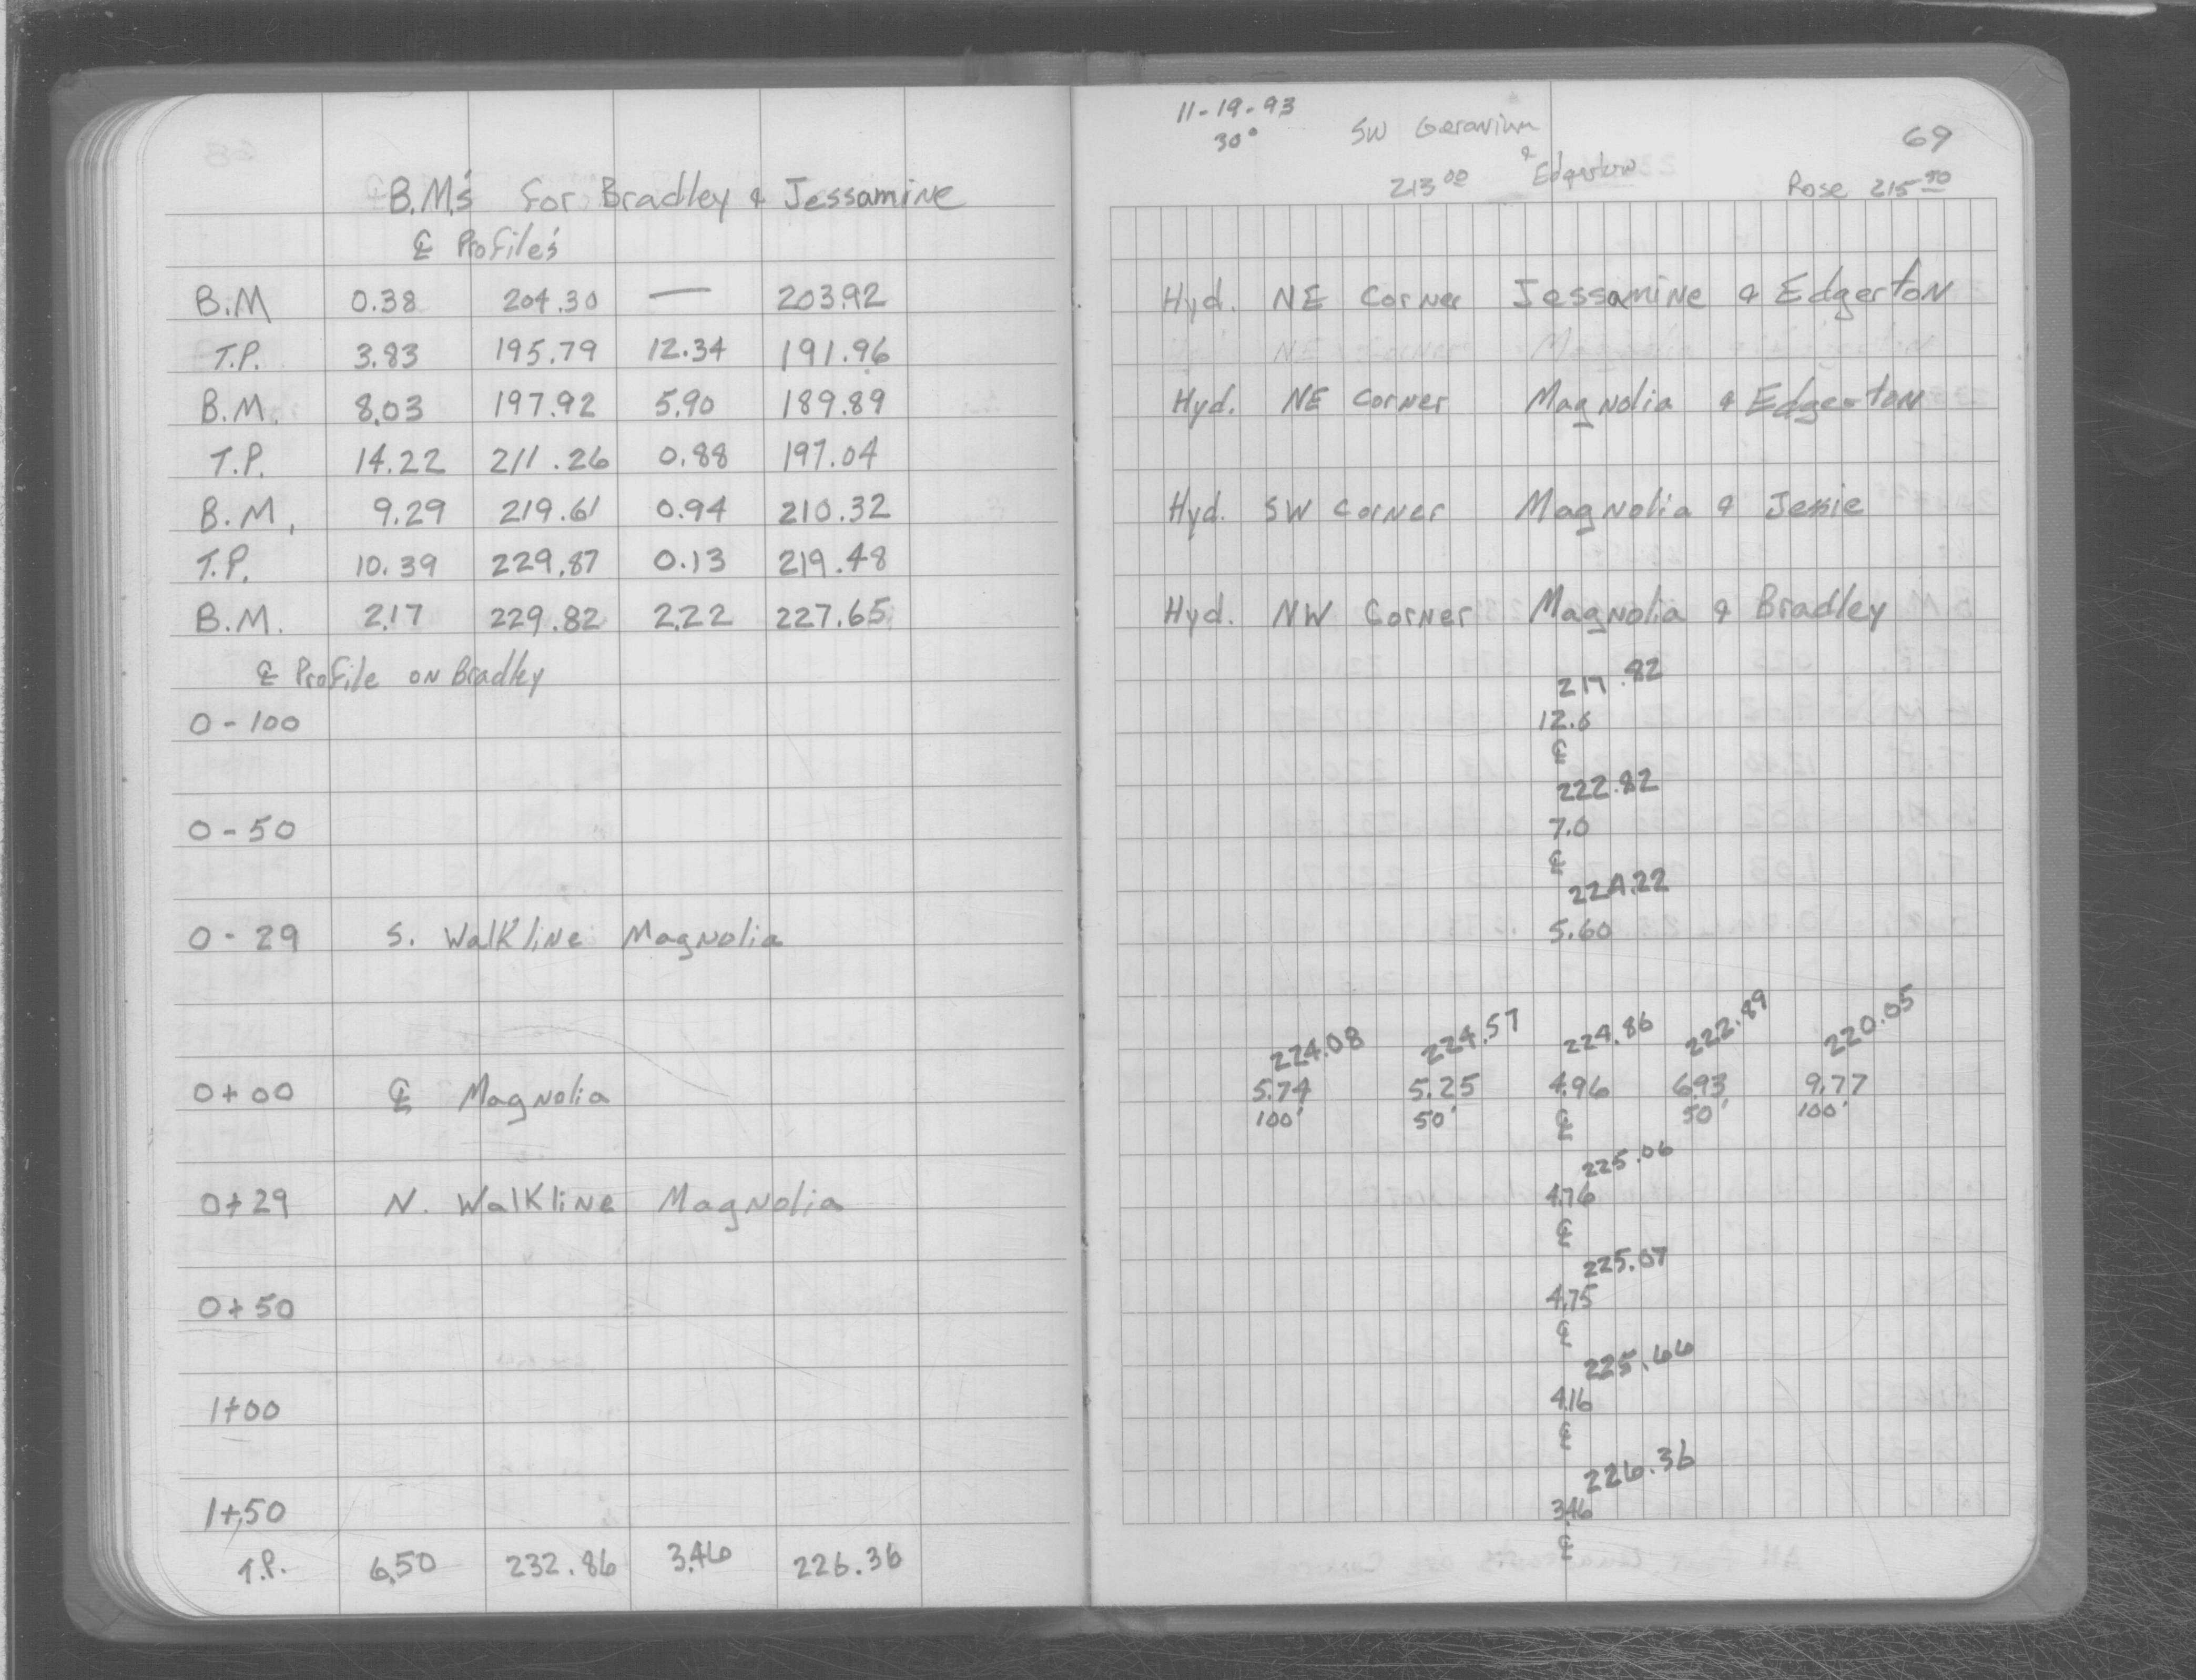 B.M.'s for Bradley & Jessamine
℄ Profile's
B.M 0.38 204.30 — 203.92
T.P. 3.83 195.79 12.34 191.96
B.M. 8.03 197.92 5.90 189.89
T.P. 14.22 211.26 0.88 197.04
B.M. 9.29 219.61 0.94 210.32
T.P. 10.39 229.87 0.13 219.48
B.M. 2.17 229.82 2.22 227.65
℄ Profile on Bradley
0-100
0-50
0-29 S. Walkline Magnolia
0+00 ℄ Magnolia
0+29 N. Walkline Magnolia
0+50
1+00
1+50
T.P. 6.50 232.86 3.46 226.36
11-19-93
30°
SW Geranium
& Edgerton
213 00
69
Rose 215 50
Hyd. NE Corner Jessamine & Edgerton
NE Corner Magnolia & Edgerton
Hyd. NE Corner Magnolia & Edgerton
Hyd. SW Corner Magnolia & Jessie
Hyd. NW Corner Magnolia & Bradley
217.82
12.0
℄
222.82
7.0
℄
224.22
5.60
224.08 224.57 224.86 222.89 220.05
5.74 5.25 4.96 6.93 9.77
100' 50' ℄ 50' 100'
225.06
4.76
℄
225.07
4.75
℄
225.66
4.16
℄
226.36
3.46
℄